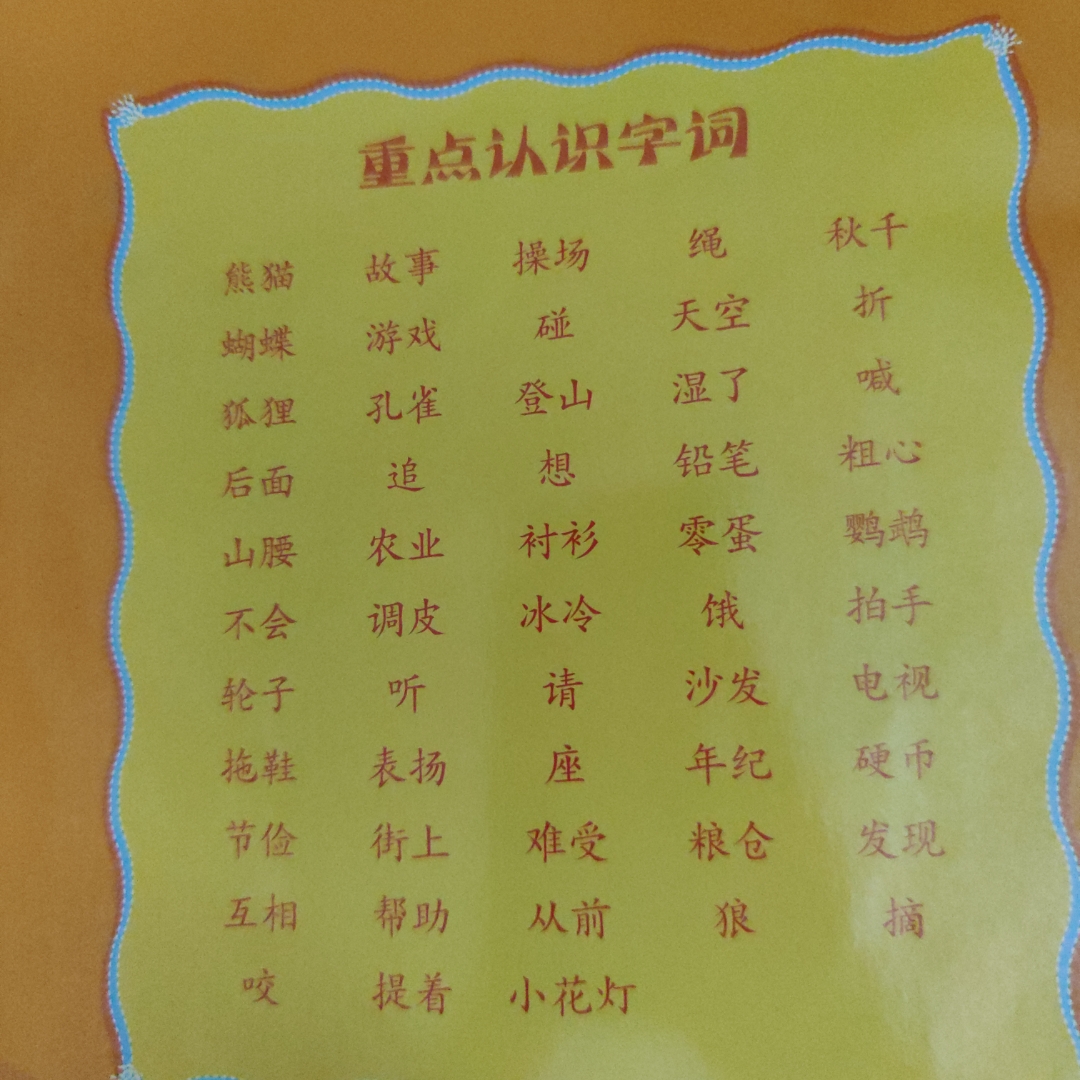 重点认识字词
熊猫 故事 操场 绳 秋千
蝴蝶 游戏 碰 天空 折
狐狸 孔雀 登山 湿了 喊
后面 追 想 铅笔 粗心
山腰 农业 衬衫 零蛋 鹦鹉
不会 调皮 冰冷 饿 拍手
轮子 听 请 沙发 电视
拖鞋 表扬 座 年纪 硬币
节俭 街上 难受 粮仓 发现
互相 帮助 从前 狼 摘
咬 提着 小花灯